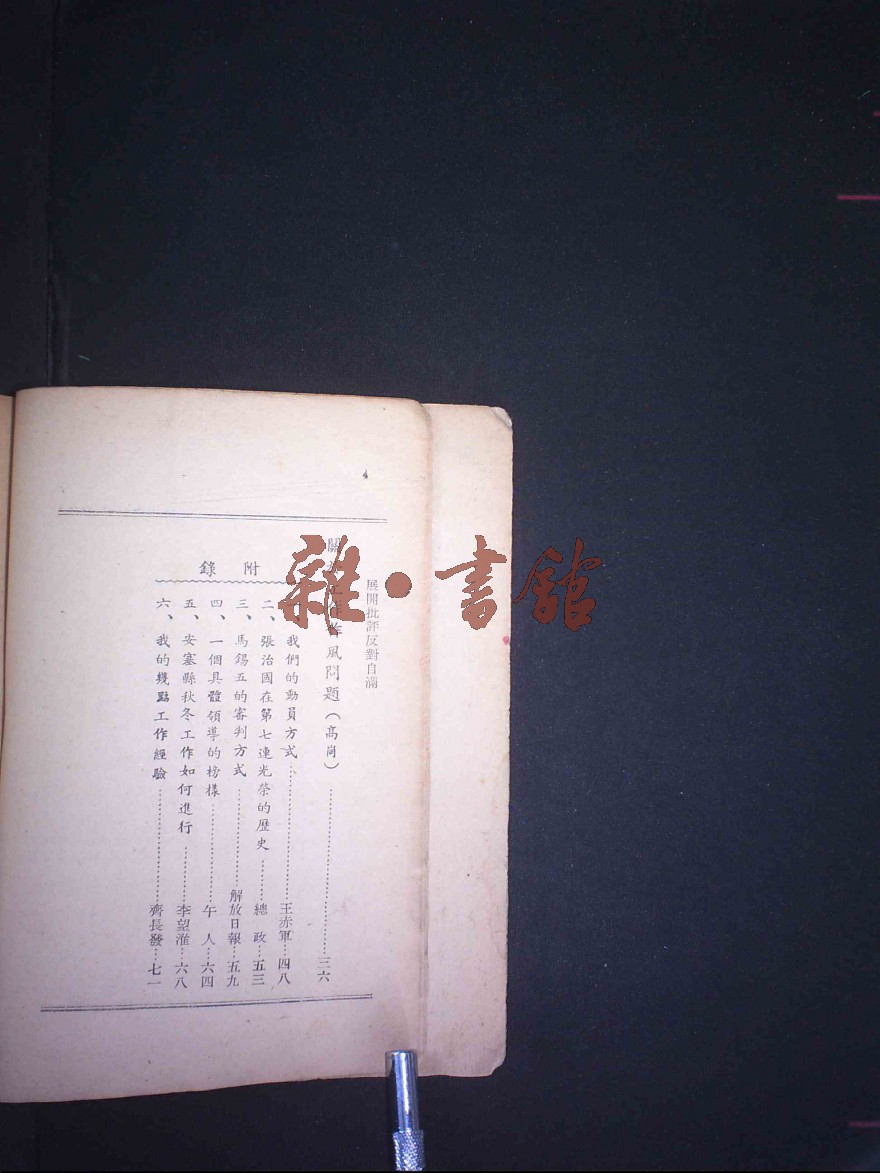 4
展開批評反對自滿
風問題（高岡）…………三六
附錄
我們的動員方式…………王赤軍…四八
二、張治國在第七連光榮的歷史……總政…五三
三、馬錫五的審判方式…………解放日報…五九
四、一個具體領導的榜樣…………午人…六四
五、安塞縣秋冬工作如何進行……李望淮…六八
六、我的幾點工作經驗…………齊長發…七一
雜·書館